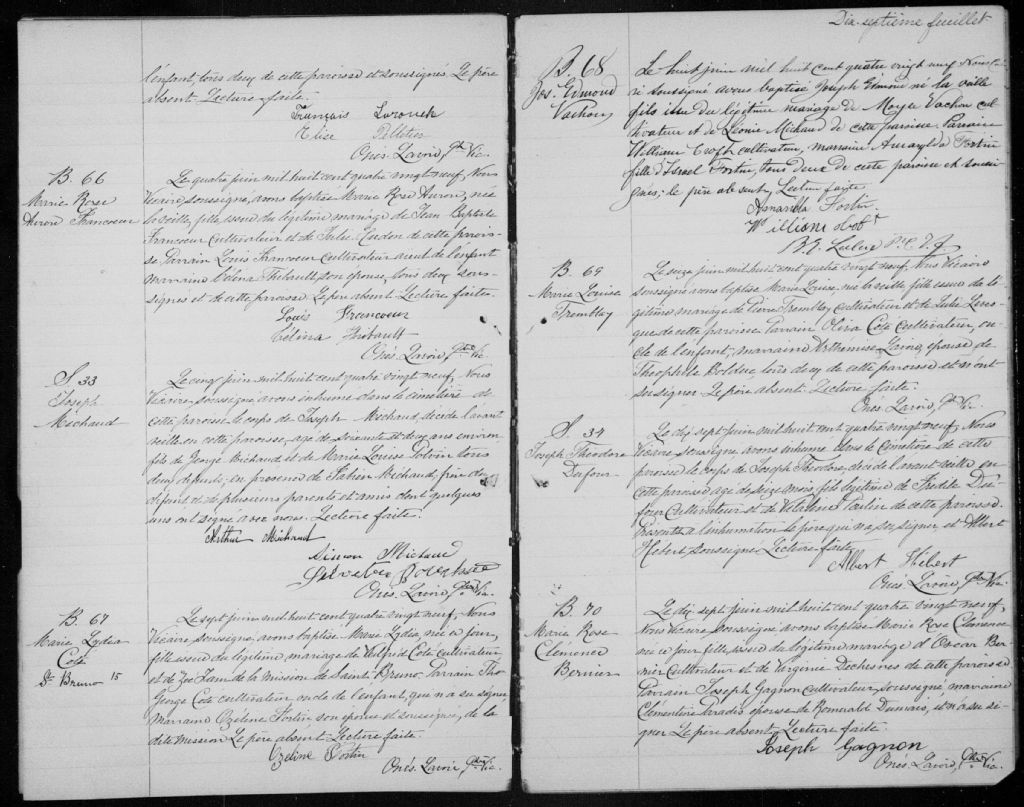 l'enfant, tous deux de cette paroisse et soussignés. Le père
absent. Lecture faite.
François
Elise Pelletier
Onés. Lavoie, Ptre Vic.
B. 66
Marie Rose
Aurore Francoeur
Le quatre juin mil huit cent quatre vingt neuf, Nous
Vicaire, soussigné, avons baptisé Marie Rose Aurore, née
la veille, fille issue du légitime mariage de Jean Baptiste
Francoeur Cultivateur et de Julie Dudon de cette parois-
se Parrain Louis Francoeur Cultivateur aieul de l'enfant
marraine Célina Thibault, son épouse, tous deux sous-
signés et de cette paroisse. Le père absent. Lecture faite.
Louis Francoeur
Célina Thibault
Onés. Lavoie, Ptre Vic.
S. 33
Joseph
Michaud
Le cinq juin mil huit cent quatre vingt neuf, Nous
Vicaire, soussigné avons inhumé dans le cimetière de
cette paroisse, le corps de Joseph Michaud, décédé l'avant
veille en cette paroisse, agé de soixante et deux ans environ
fils de George Michaud et de Marie Louise Potvin tous
deux défunts, en présence de Fabien Michaud, frère du
défunt et de plusieurs parents et amis dont quelques
uns ont signé avec nous. Lecture faite.
Arthur Michaud
Simon Michaud
Silvestre
Onés. Lavoie, Ptre Vic.
B. 67
Marie Lydia
Coté
St Bruno 15
Le sept juin mil huit cent quatre vingt neuf, Nous
Vicaire, soussigné, avons baptisé Marie Lydia, née ce jour,
fille issue du légitime mariage de Wilfrid Coté cultivateur
et de Zoé Lam de la mission de Saint Bruno. Parrain Tho
George Coté cultivateur oncle de l'enfant, qui n'a su signer
Marraine Ozeline Fortin son épouse et soussigné, de la
dite mission Le père absent. Lecture faite.
Ozeline Fortin
Onés. Lavoie, Ptre Vic.
Dix-septième feuillet
B. 68
Jos. Edmond
Vachon
Le huit juin mil huit cent quatre vingt neuf Nous
soussigné avons baptisé Joseph Edmond né la veille
fils issu du légitime mariage de Moyse Vachon cul
tivateur et de Léonie Michaud de cette paroisse. Parrain
William cultivateur, marraine Amarylda Fortin
fille d'Israel Fortin, tous deux de cette paroisse et soussi-
gnés; le père absent, Lecture faite.
Amarilda Fortin
William
B. E. Leclerc P. C.
B. 69
Marie Louise
Tremblay
Le seize juin mil huit cent quatre vingt neuf, Nous Vicaire
soussigné avons baptisé Marie Louise, née la veille, fille issue du lé-
gitime mariage de Pierre Tremblay cultivateur et de Julie Leves-
que de cette paroisse. Parrain Oliva Coté Cultivateur, on-
cle de l'enfant, marraine Arthémise Lavoie, épouse de
Théophile Bolduc, tous deux de cette paroisse et n'ont
su signer. Le père absent. Lecture faite.
Onés. Lavoie, Ptre Vic.
S. 34
Joseph Théodore
Dufour
Le dix sept juin mil huit cent quatre vingt neuf, Nous
Vicaire, soussigné, avons inhumé dans le cimetière de cette
paroisse le corps de Joseph Théodore, décédé l'avant veille en
cette paroisse agé de seize mois, fils légitime de Fidèle Du-
four Cultivateur et de Vitaline Poulin de cette paroisse.
Présents à l'inhumation le père qui n'a su signer et Albert
Hébert soussigné. Lecture faite.
Albert Hébert
Onés. Lavoie, Ptre Vic.
B. 70
Marie Rose
Clémence
Bernier
Le dix sept juin mil huit cent quatre vingt neuf,
Nous Vicaire soussigné avons baptisé Marie Rose Clémence
née ce jour, fille issue du légitime mariage d'Oscar Ber
nier Cultivateur et de Virginie Duchesnes de cette paroisse
Parrain Joseph Gagnon cultivateur, soussigné marraine
Clémentine Paradis épouse de Romuald Dumais, et n'a su si-
gner Le père absent. Lecture faite.
Joseph Gagnon
Onés. Lavoie, Ptre Vic.